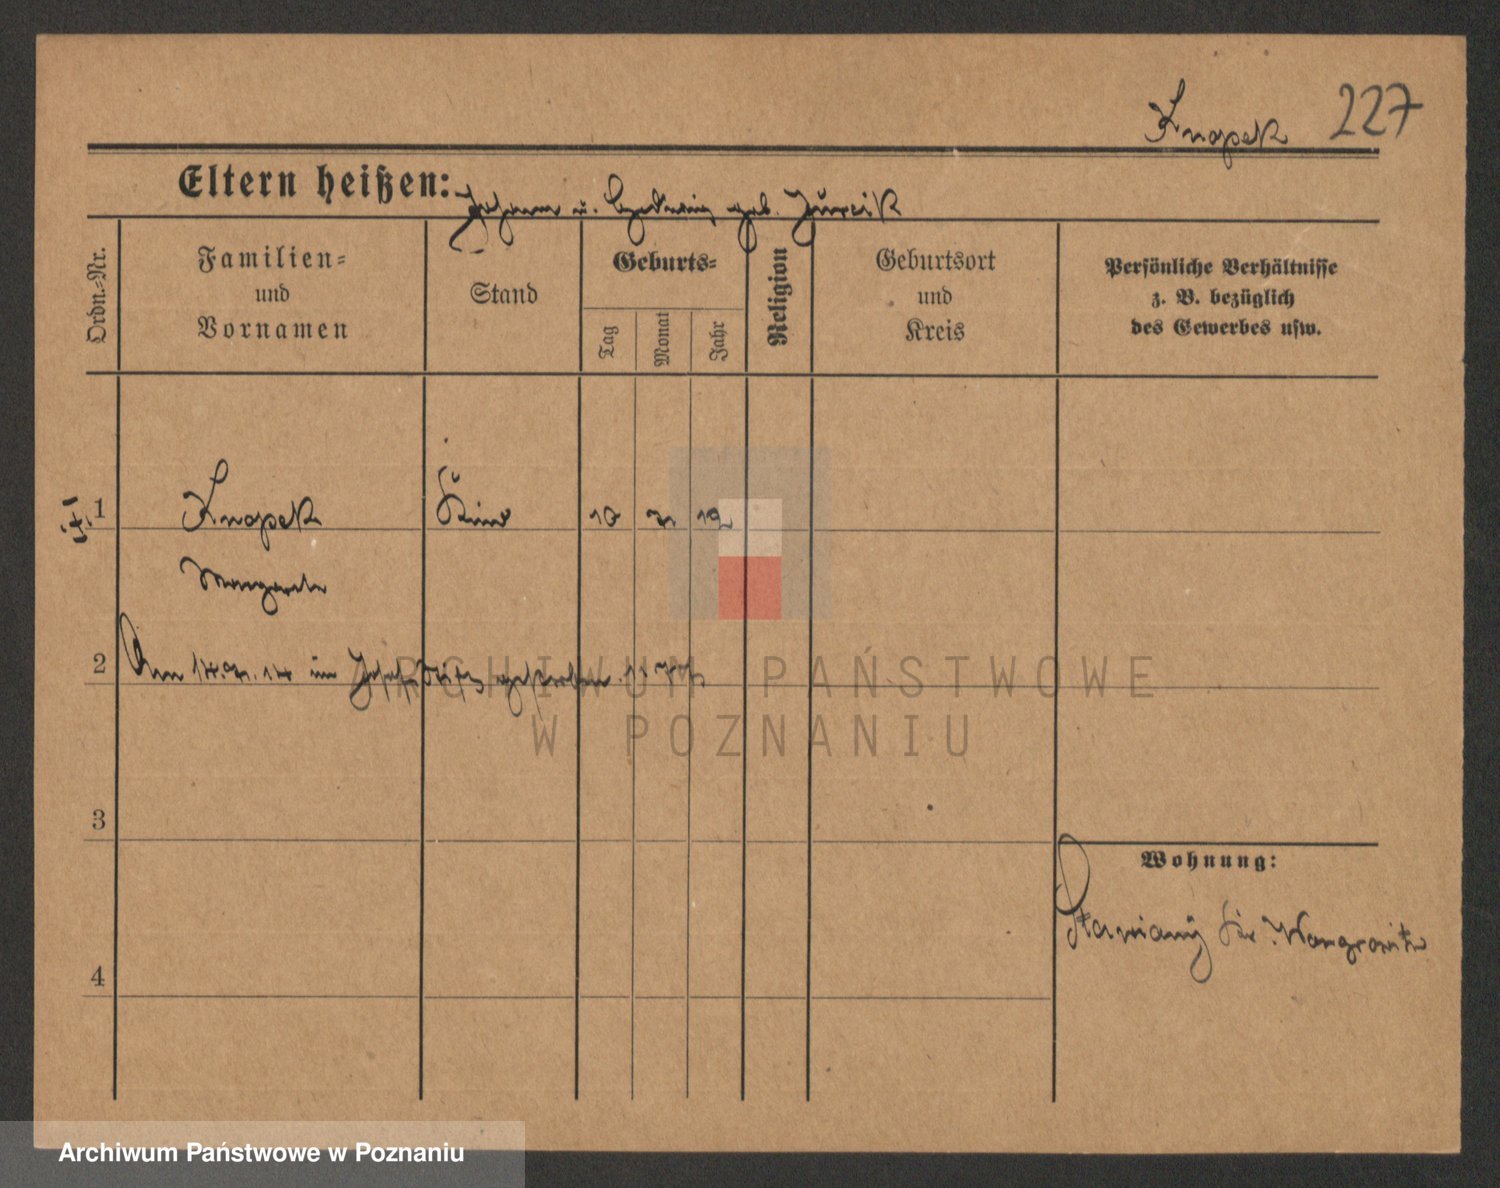 Knapek 227
Eltern heißen: Johann u. Hedwig geb. Jurcik
Ordn.-Nr.
Familien-
und
Vornamen
Stand
Geburts-
Tag
Monat
Jahr
Religion
Geburtsort
und
Kreis
Persönliche Verhältnisse
z. B. bezüglich
des Gewerbes usw.
1 Knapek Kind 10 7. 12
Margarete
2 Am 14.9.14 im Josefstift gestorben.
ARCHIWUM PAŃSTWOWE
W POZNANIU
3
Wohnung:
Kr. Wongrowitz
4
Archiwum Państwowe w Poznaniu